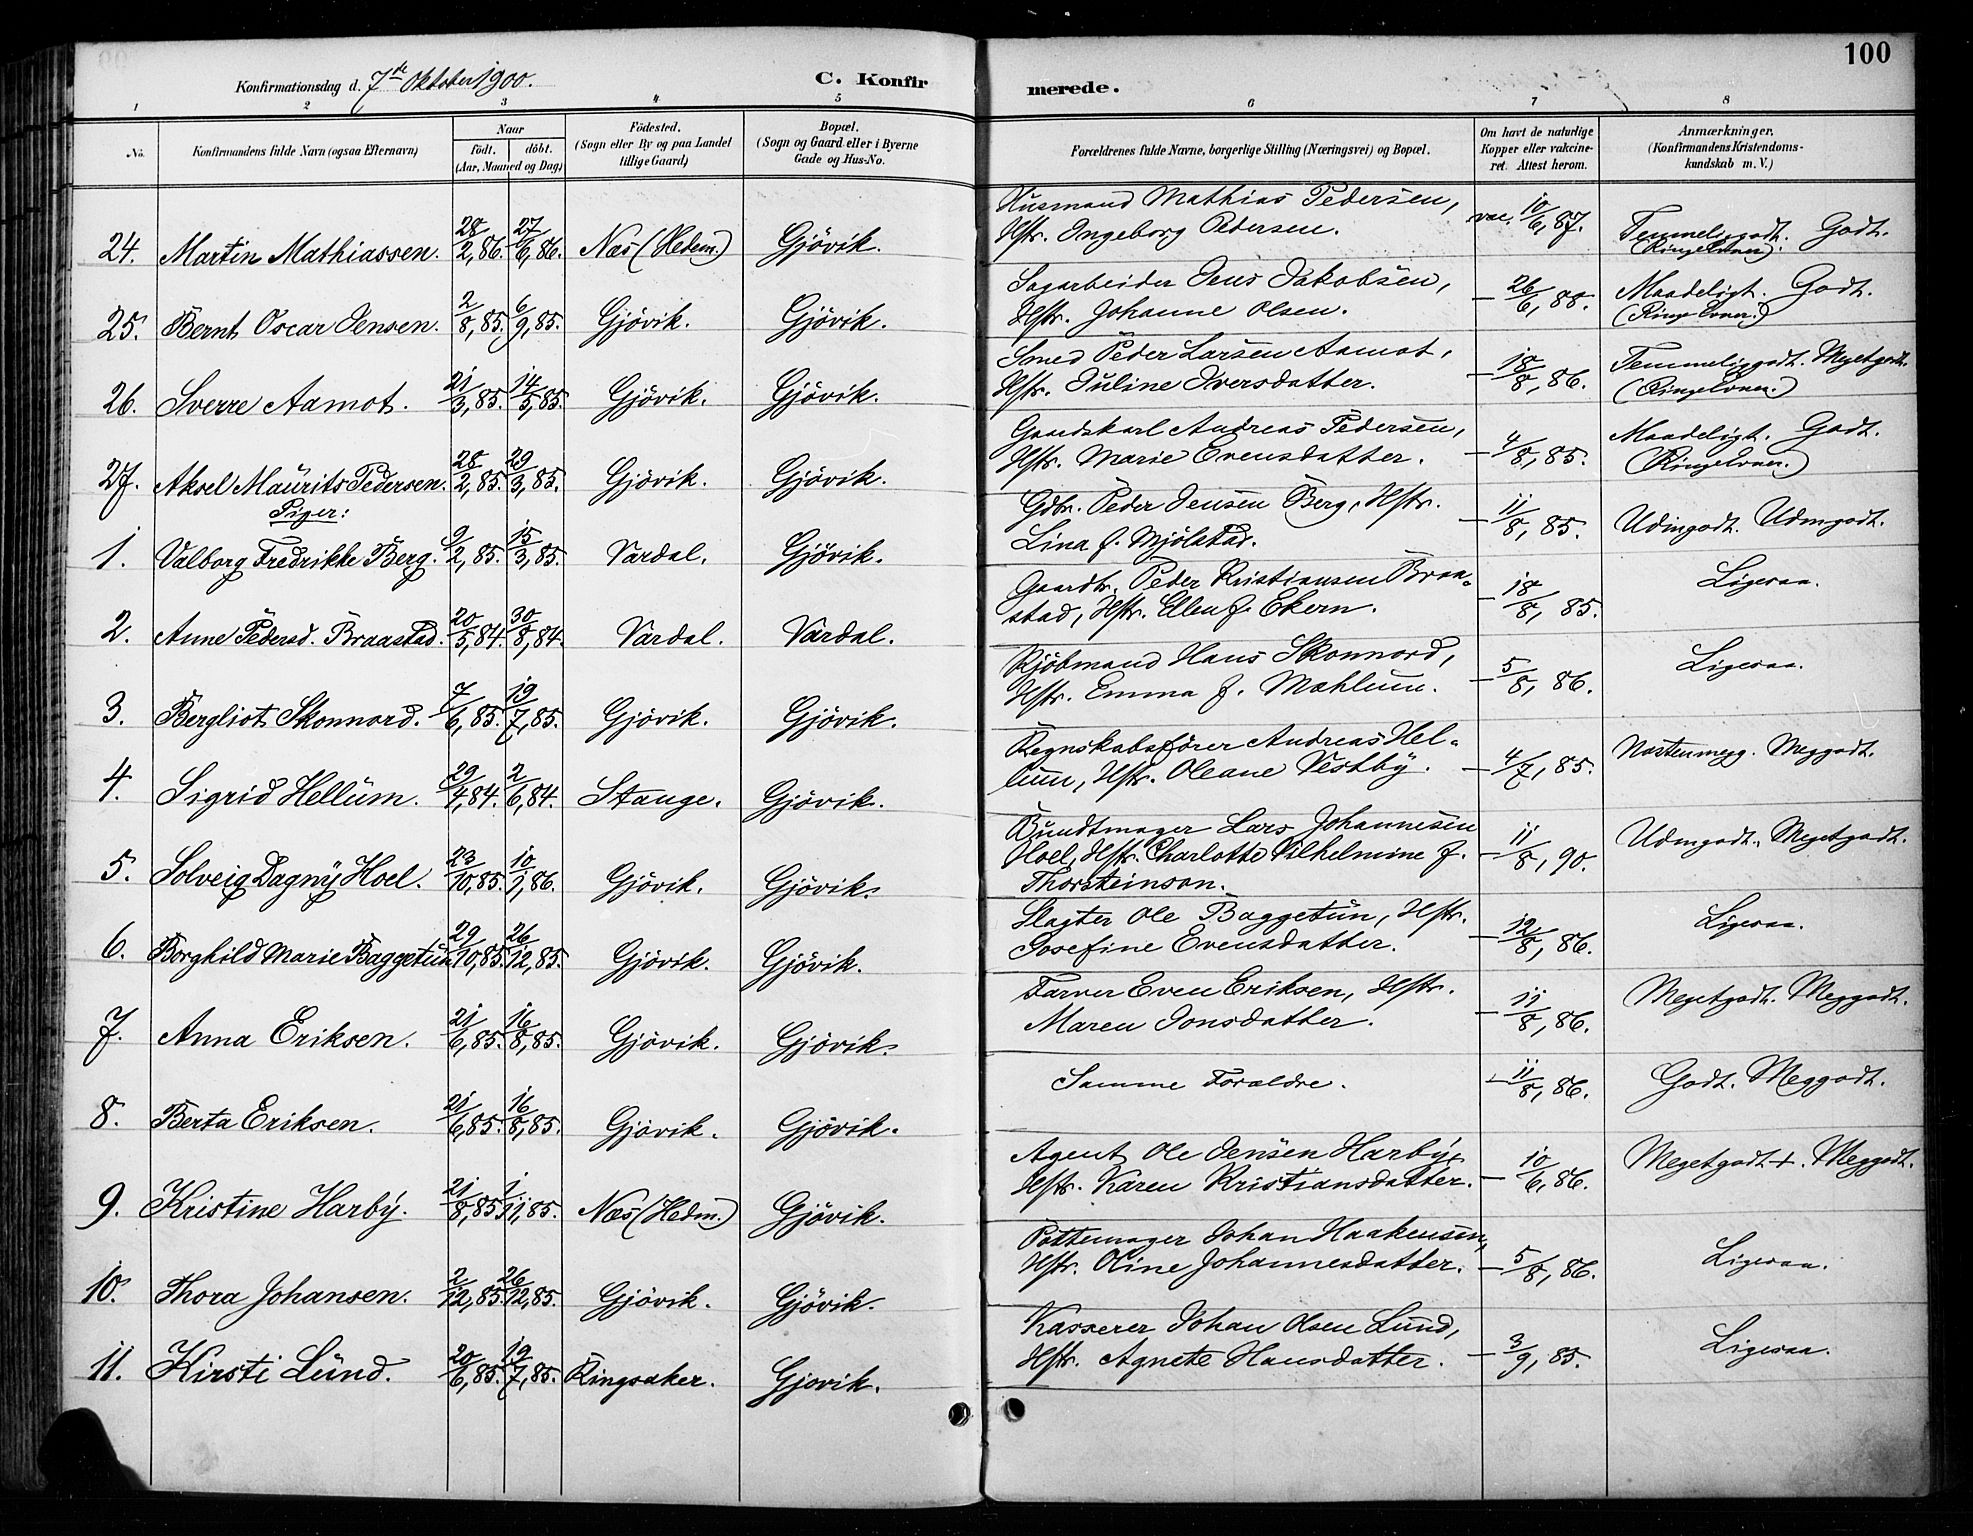 100
Konfirmationsdag d. 7de Oktober 1900.
C. Konfirmerede.
1 2 3 4 5 6 7 8
No. Konfirmandens fulde Navn (ogsaa Efternavn) Naar født. døbt. (Aar, Maaned og Dag) Fødested. (Sogn eller By og paa Landet tillige Gaard) Bopæl. (Sogn og Gaard eller i Byerne Gade og Hus-No. Forældrenes fulde Navne, borgerlige Stilling (Næringsvei) og Bopæl. Om havt de naturlige Kopper eller vakcineret. Attest herom. Anmærkninger. (Konfirmandens Kristendomskundskab m. V.)
24. Martin Mathiassen. 28/2, 86. 27/6, 86. Næs (Hedm.) Gjövik. Husmand Mathias Pedersen, Hstr. Ingeborg Pedersen. vac. 10/6, 87. Temmeliggodt. Godt. (Ringe Evner).
25. Bernt Oscar Jensen. 2/8, 85. 6/9, 85. Gjövik. Gjövik. Sagarbeider Jens Jakobsen, Hstr. Johanne Olsen. – 26/6, 88. Maadeligt. Godt. (Ringe Evner.)
26. Sverre Aamot. 21/3, 85. 14/5, 85. Gjövik. Gjövik. Smed Peder Larsen Aamot, Hstr. Juline Iversdatter. – 18/8, 86. Temmeliggodt. Megetgodt. (Ringe Evner.)
27. Aksel Maurits Pedersen. 28/2, 85. 29/3, 85. Gjövik. Gjövik. Gaardskarl Andreas Pedersen, Hstr. Marie Evensdatter. – 4/8, 85. Maadeligt. Godt. (Ringe Evner.)
Piger:
1. Valborg Fredrikke Berg. 9/2, 85. 15/3, 85. Vardal. Gjövik. Gdbr. Peder Jensen Berg, Hstr. Lina f. Mjölstad. – 11/8, 85. Udmgodt. Udmgodt.
2. Anne Pedersd. Braastad. 20/5, 84. 30/8, 84. Vardal. Vardal. Gaardbr. Peder Kristiansen Braastad, Hstr. Ellen f. Ekern. – 18/8, 85. Ligesaa.
3. Bergliot Skonnord. 7/6, 85. 19/7, 85. Gjövik. Gjövik. Kjöbmand Hans Skonnord, Hstr. Emma f. Mæhlum. – 5/8, 86. Ligesaa.
4. Sigrid Hellum. 29/4, 84. 2/6, 84. Stange. Gjövik. Regnskabsförer Andreas Hellum, Hstr. Oleane Vestby. – 4/7, 85. Næstenmegg. Meggodt.
5. Solveig Dagny Hoel. 23/10, 85. 10/1, 86. Gjövik. Gjövik. Bundtmager Lars Johannesen Hoel, Hstr. Charlotte Vilhelmine f. Thorsteinson. – 11/8, 90. Udmgodt. Megetgodt.
6. Borghild Marie Baggetun. 29/10, 85. 26/12, 85. Gjövik. Gjövik. Slagter Ole Baggetun, Hstr. Josefine Evensdatter. – 12/8, 86. Ligesaa.
7. Anna Eriksen. 21/6, 85. 16/8, 85. Gjövik. Gjövik. Farver Even Eriksen, Hstr. Maren Jonsdatter. – 11/8, 86. Megetgodt. Meggodt.
8. Berta Eriksen. 21/6, 85. 16/8, 85. Gjövik. Gjövik. Samme Forældre. – 11/8, 86. Godt. Meggodt.
9. Kristine Harby. 21/8, 85. 1/11, 85. Næs (Hedm.) Gjövik. Agent Ole Jensen Harby, Hstr. Karen Kristiansdatter. – 10/6, 86. Megetgodt +. Meggodt.
10. Thora Johansen. 2/12, 85. 26/12, 85. Gjövik. Gjövik. Pottemager Johan Haakensen, Hstr. Oline Johannesdatter. – 5/8, 86. Ligesaa.
11. Kirsti Lund. 20/6, 85. 19/7, 85. Ringsaker. Gjovik. Kasserer Johan Olsen Lund, Hstr. Agnete Hansdatter. – 3/9, 85. Ligesaa.